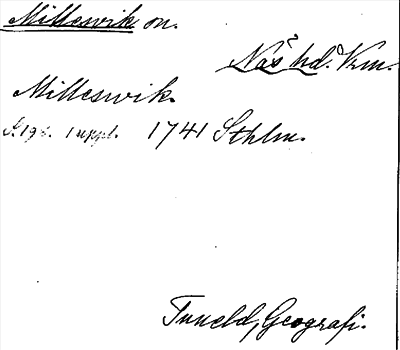 Millesvik sn.
Näs hd. Vrm.
Milleswik.
S. 198. 1 uppl. 1741 Sthlm.
Tuneld, Geografi.